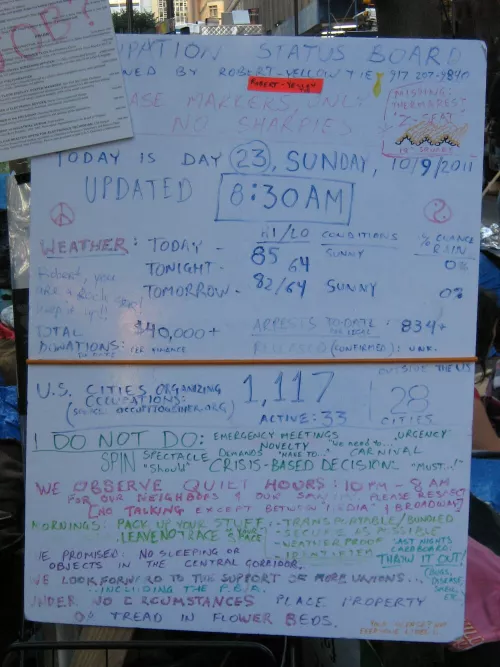 OCCUPATION STATUS BOARD
OWNED BY ROBERT-YELLOW TIE 917 207-9840
ROBERT-YELLOW
PLEASE MARKERS ONLY
NO SHARPIES
MISSING:
THERMAREST
"Z-SEAT"
TODAY IS DAY 23, SUNDAY, 10/9/2011
UPDATED 8:30AM
WEATHER: HI/LO CONDITIONS % CHANCE RAIN
TODAY - 85 64 SUNNY 0%
TONIGHT -
TOMORROW - 82/64 SUNNY 0%
Robert, you
are a Rock Star
keep it up!!
TOTAL DONATIONS: $40,000+
TO DATE PER FINANCE
ARRESTS TO DATE: 834+
RELEASED (CONFIRMED): UNK.
U.S. CITIES ORGANIZING
OCCUPATIONS: 1,117
(SOURCE: OCCUPYTOGETHER.ORG) ACTIVE: 33
OUTSIDE THE US
28
CITIES
! DO NOT DO: EMERGENCY MEETINGS URGENCY
NOVELTY "We need to..."
SPIN SPECTACLE DEMANDS "HAVE TO..." CARNIVAL
"Should" CRISIS-BASED DECISIONS "MUST...!"
WE OBSERVE QUIET HOURS: 10 PM - 8 AM
FOR OUR NEIGHBORS & OUR PLEASE RESPECT
[NO TALKING EXCEPT BETWEEN & BROADWAY]
MORNINGS: PACK UP YOUR STUFF - TRANSPORTABLE/BUNDLED
LEAVE NO TRACE IN YOUR SPACE
- WEATHERPROOF
- IDENTIFIED
LAST NIGHTS
CARDBOARD?
THROW IT OUT!
(BUGS,
DISEASE,
SMELL,
ETC.
WE PROMISED: NO SLEEPING OR
OBJECTS IN THE CENTRAL CORRIDOR.
WE LOOK FORWARD TO THE SUPPORT OF MORE UNIONS...
...INCLUDING THE P.B.A.
UNDER NO CIRCUMSTANCES PLACE PROPERTY
OR TREAD IN FLOWER BEDS.